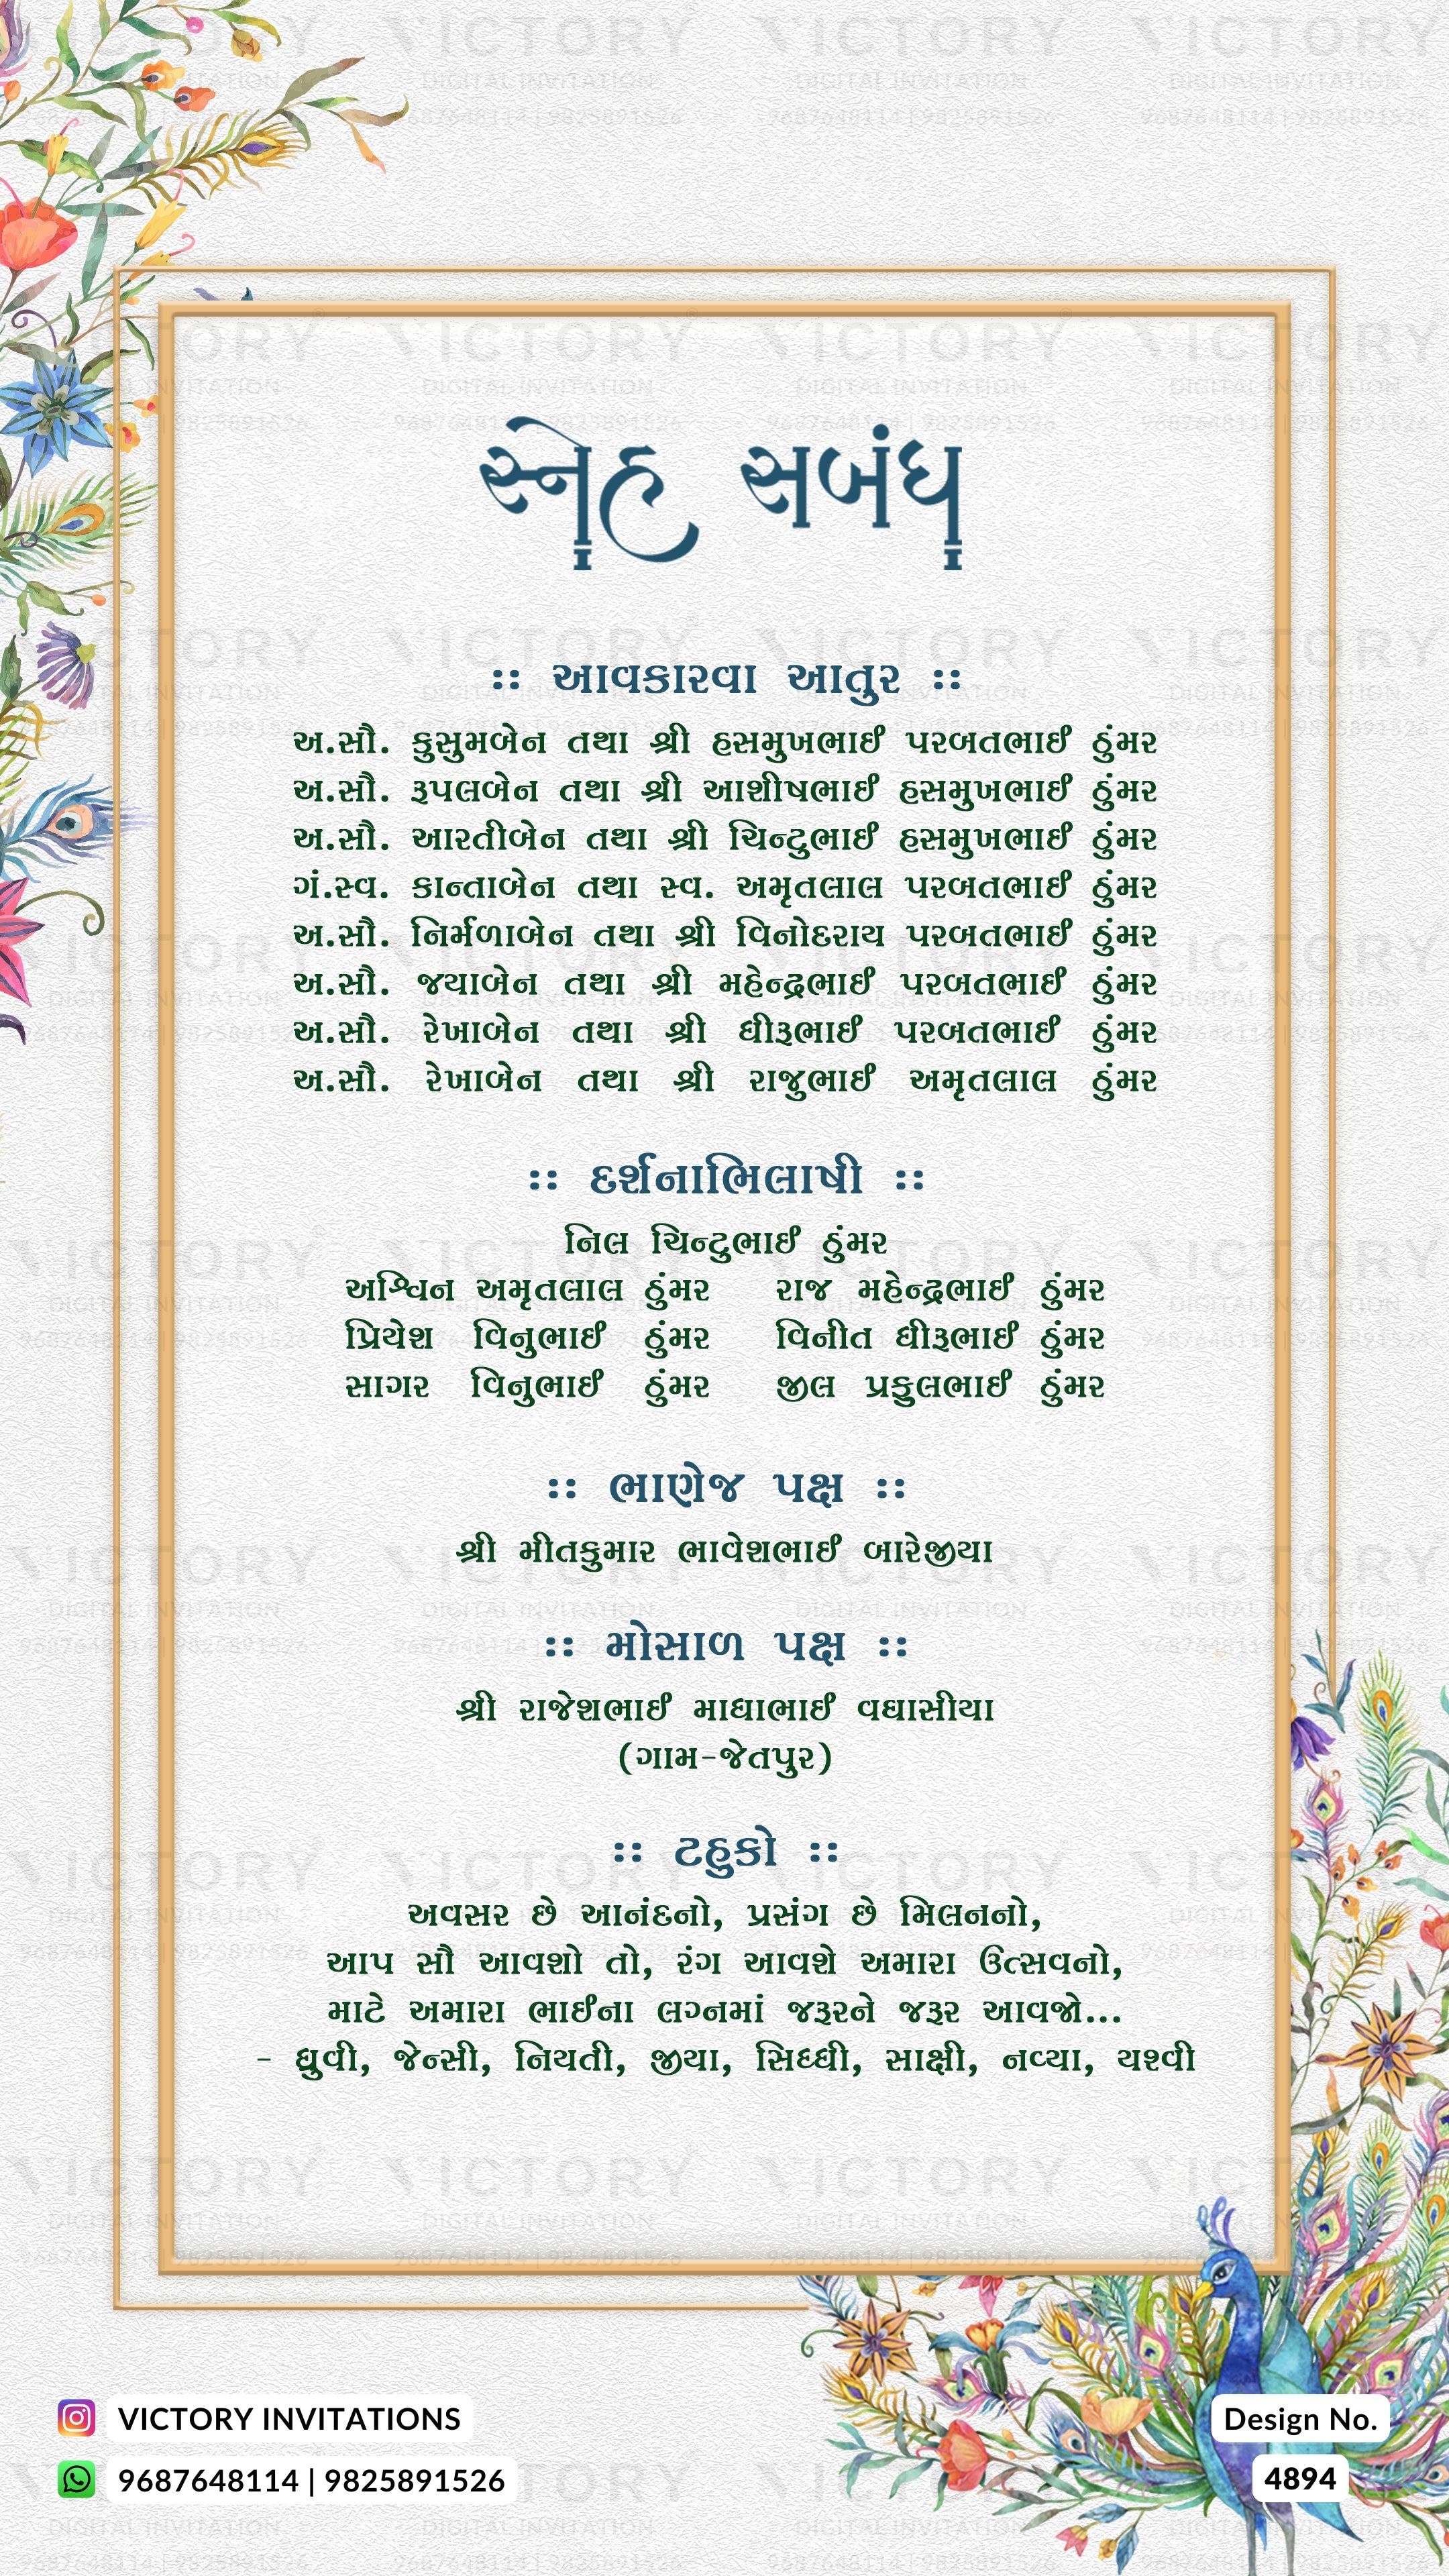 સ્નેહ સબંધ
:: આવકારવા આતુર ::
અ.સૌ. કુસુમબેન તથા શ્રી હસમુખભાઈ પરબતભાઈ ઠુંમર
અ.સૌ. રૂપલબેન તથા શ્રી આશીષભાઈ હસમુખભાઈ ઠુંમર
અ.સૌ. આરતીબેન તથા શ્રી ચિન્ટુભાઈ હસમુખભાઈ ઠુંમર
ગં.સ્વ. કાન્તાબેન તથા સ્વ. અમૃતલાલ પરબતભાઈ ઠુંમર
અ.સૌ. નિર્મળાબેન તથા શ્રી વિનોદરાય પરબતભાઈ ઠુંમર
અ.સૌ. જયાબેન તથા શ્રી મહેન્દ્રભાઈ પરબતભાઈ ઠુંમર
અ.સૌ. રેખાબેન તથા શ્રી ધીરૂભાઈ પરબતભાઈ ઠુંમર
અ.સૌ. રેખાબેન તથા શ્રી રાજુભાઈ અમૃતલાલ ઠુંમર
:: દર્શનાભિલાષી ::
નિલ ચિન્ટુભાઈ ઠુંમર
અશ્વિન અમૃતલાલ ઠુંમર રાજ મહેન્દ્રભાઈ ઠુંમર
પ્રિયેશ વિનુભાઈ ઠુંમર વિનીત ધીરૂભાઈ ઠુંમર
સાગર વિનુભાઈ ઠુંમર જીલ પ્રફુલભાઈ ઠુંમર
:: ભાણેજ પક્ષ ::
શ્રી મીતકુમાર ભાવેશભાઈ બારેજીયા
:: મોસાળ પક્ષ ::
શ્રી રાજેશભાઈ માધાભાઈ વઘાસીયા
(ગામ-જેતપુર)
:: ટહુકો ::
અવસર છે આનંદનો, પ્રસંગ છે મિલનનો,
આપ સૌ આવશો તો, રંગ આવશે અમારા ઉત્સવનો,
માટે અમારા ભાઈના લગ્નમાં જરૂરને જરૂર આવજો...
- ધ્રુવી, જેન્સી, નિયતી, જીયા, સિધ્ધી, સાક્ષી, નવ્યા, યશ્વી
VICTORY INVITATIONS
9687648114 | 9825891526
Design No.
4894